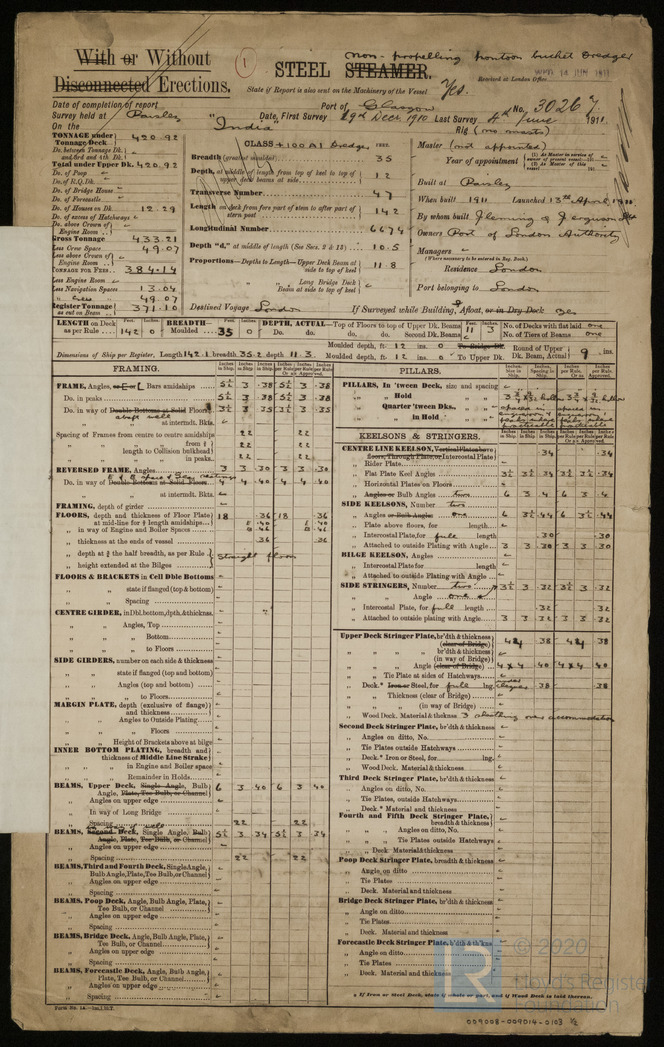 With or Without
Disconnected Erections.
1
STEEL STEAMER.
non-propelling pontoon bucket Dredger
Received at London Office
WED. 14 JUN 1911
State if Report is also sent on the Machinery of the Vessel Yes.
Date of completion of report
Port of Glasgow
No. 30267
Survey held at Paisley
Date, First Survey 19th Decr. 1910 Last Survey 4th June 1911
On the "India"
Rig (no masts)
TONNAGE under Tonnage Deck 420.92
Do. between Tonnage Dk. and 3rd and 4th Dk.
Total under Upper Dk. 420.92
Do. of Poop
Do. of R.Q. Dk.
Do. of Bridge House
Do. of Forecastle
Do. of Houses on Dk. 12.29
Do. of excess of Hatchways
Do. above Crown of Engine Room
Gross Tonnage 433.21
Less Crew Space 49.07
Less above Crown of Engine Room
TONNAGE FOR FEES 384.14
Less Engine Room
Less Navigation Spaces 13.04
Crew 49.07
Register Tonnage as cut on Beam 371.10
CLASS +100 A1 Dredger
FEET.
Breadth (greatest moulded) 35
Depth, at middle of length from top of keel to top of upper deck beams at side 12
Transverse Number 47
Length on deck from fore part of stem to after part of stern post 142
Longitudinal Number 6674
Depth "d," at middle of length (See Secs. 2 & 13) 10.5
Proportions—Depths to Length—Upper Deck Beam at side to top of keel 11.8
Long Bridge Deck Beam at side to top of keel
Destined Voyage London
If Surveyed while Building, & Afloat, or in Dry Dock Yes
Master (not appointed)
Year of appointment
(1) As Master in service of owner of present vessel
(2) As Master of this vessel
Built at Paisley
When built 1911 Launched 13th April 1911
By whom built Fleming & Ferguson Ltd
Owners Port of London Authority
Managers
(Where necessary to be entered in Reg. Book.)
Residence London
Port belonging to London
LENGTH on Deck as per Rule Feet 142 Inches 0
BREADTH— Moulded Feet 35 Inches 0
DEPTH, ACTUAL—Top of Floors to top of Upper Dk. Beams Feet 11 Inches 3
Do. do. Second Dk. Beams
No. of Decks with flat laid one
No. of Tiers of Beams one
Dimensions of Ship per Register, Length 142.1 breadth 35.2 depth 11.3
Moulded depth, ft. 12 ins. 0 To Bridge Dk.
Moulded depth, ft. 12 ins. 0 To Upper Dk.
Round of Upper Dk. Beam, Actual 9 ins.
FRAMING.
FRAME, Angles, or E or L Bars amidships 5½ 3 .38 5½ 3 .38
Do. in peaks 5½ 3 .38 5½ 3 .38
Do. in way of Double Bottoms at Solid Floors 3½ 3 .35 3½ 3 .35
at intermdt. Bkts.
Spacing of Frames from centre to centre amidships 22 22
from ⅕ length to Collision bulkhead 22 22
in peaks 22 22
REVERSED FRAME, Angles 3 3 .30 3 3 .30
Do. in way of Double Bottoms at Solid Floors 4 4 .40 4 4 .40
at intermdt. Bkts.
FRAMING, depth of girder
FLOORS, depth and thickness of Floor Plate at mid-line for ½ length amidships 18 .36 18 .36
in way of Engine and Boiler Spaces
thickness at the ends of vessel .36 .36
depth at ¾ the half breadth, as per Rule
height extended at the Bilges
straight floors
FLOORS & BRACKETS in Cell Dble Bottoms
state if flanged (top & bottom)
Spacing
CENTRE GIRDER, in Dbl. bottom, dpth. & thicknss.
Angles, Top
Bottom
to Floors
SIDE GIRDERS, number on each side & thickness
state if flanged (top and bottom)
Angles (top and bottom)
to Floors
MARGIN PLATE, depth (exclusive of flange) and thickness
Angles to Outside Plating
Floors
Height of Brackets above at bilge
INNER BOTTOM PLATING, breadth and thickness of Middle Line Strake
in Engine and Boiler space
Remainder in Holds
BEAMS, Upper Deck, Single Angle, Bulb Angle, Plate, Tee Bulb, or Channel 6 3 .40 6 3 .40
Angles on upper edge
In way of Long Bridge
Spacing 22 22
BEAMS, Second Deck, Single Angle, Bulb Angle, Plate, Tee Bulb, or Channel 5½ 3 .34 5½ 3 .34
Angles on upper edge
Spacing 22 22
BEAMS, Third and Fourth Deck, Single Angle, Bulb Angle, Plate, Tee Bulb, or Channel
Angles on upper edge
Spacing
BEAMS, Poop Deck, Angle, Bulb Angle, Plate, Tee Bulb, or Channel
Angles on upper edge
Spacing
BEAMS, Bridge Deck, Angle, Bulb Angle, Plate, Tee Bulb, or Channel
Angles on upper edge
Spacing
BEAMS, Forecastle Deck, Angle, Bulb Angle, Plate, Tee Bulb, or Channel
Angles on upper edge
Spacing
PILLARS.
PILLARS, In 'tween Deck, size and spacing
Hold
Quarter 'tween Dks.,
in Hold
KEELSONS & STRINGERS.
CENTRE LINE KEELSON, Vertical Plate above floors, Through Plate, or Intercostal Plate .34 .34
Rider Plate
Flat Plate Keel Angles 3½ 3½ .34 3½ 3½ .34
Horizontal Plates on Floors
Angles or Bulb Angles two 6 3 .4 6 3 .4
SIDE KEELSONS, Number two
Angles or Bulb Angles one 6 3½ .44 6 3½ .44
Plate above floors, for length
Intercostal Plate, for full length .30 .30
Attached to outside Plating with Angle 3 3 .30 3 3 .30
BILGE KEELSON, Angles
Intercostal Plate for length
Attached to outside Plating with Angle
SIDE STRINGERS, Number two 3½ 3 .32 3½ 3 .32
Angle one
Intercostal Plate, for full length .32 .32
Attached to outside plating with Angle 3 3 .32 3 3 .32
Upper Deck Stringer Plate, br'dth & thickness (clear of Bridge) 44 .38 44 .38
br'dth & thickness (in way of Bridge)
Angle (clear of Bridge) 4 x 4 .40 4 x 4 .40
Tie Plate at sides of Hatchways
Deck.* Iron or Steel, for full lng. .38 .38
Thickness (clear of Bridge)
(in way of Bridge)
Wood Deck. Material & thickness 3 sheathing over accommodation
Second Deck Stringer Plate, br'dth & thickness
Angles on ditto, No.
Tie Plates outside Hatchways
Deck.* Iron or Steel, for lng.
Wood Deck. Material & thickness
Third Deck Stringer Plate, br'dth & thickness
Angles on ditto, No.
Tie Plates, outside Hatchways
Deck.* Material and thickness
Fourth and Fifth Deck Stringer Plate, breadth & thickness
Angles on ditto, No.
Tie Plates outside Hatchways
Deck. Material & thickness
Poop Deck Stringer Plate, breadth & thickness
Angle on ditto
Tie Plates
Deck. Material and thickness
Bridge Deck Stringer Plate, br'dth & thickness
Angle on ditto
Tie Plates
Deck. Material and thickness
Forecastle Deck Stringer Plate, br'dth & th'kns
Angle on ditto
Tie Plates
Deck. Material and thickness
* If Iron or Steel Deck, state if whole or part, and if Wood Deck is laid thereon.
© 2020
Lloyd's Register
Foundation
009008-009014-0103 ½